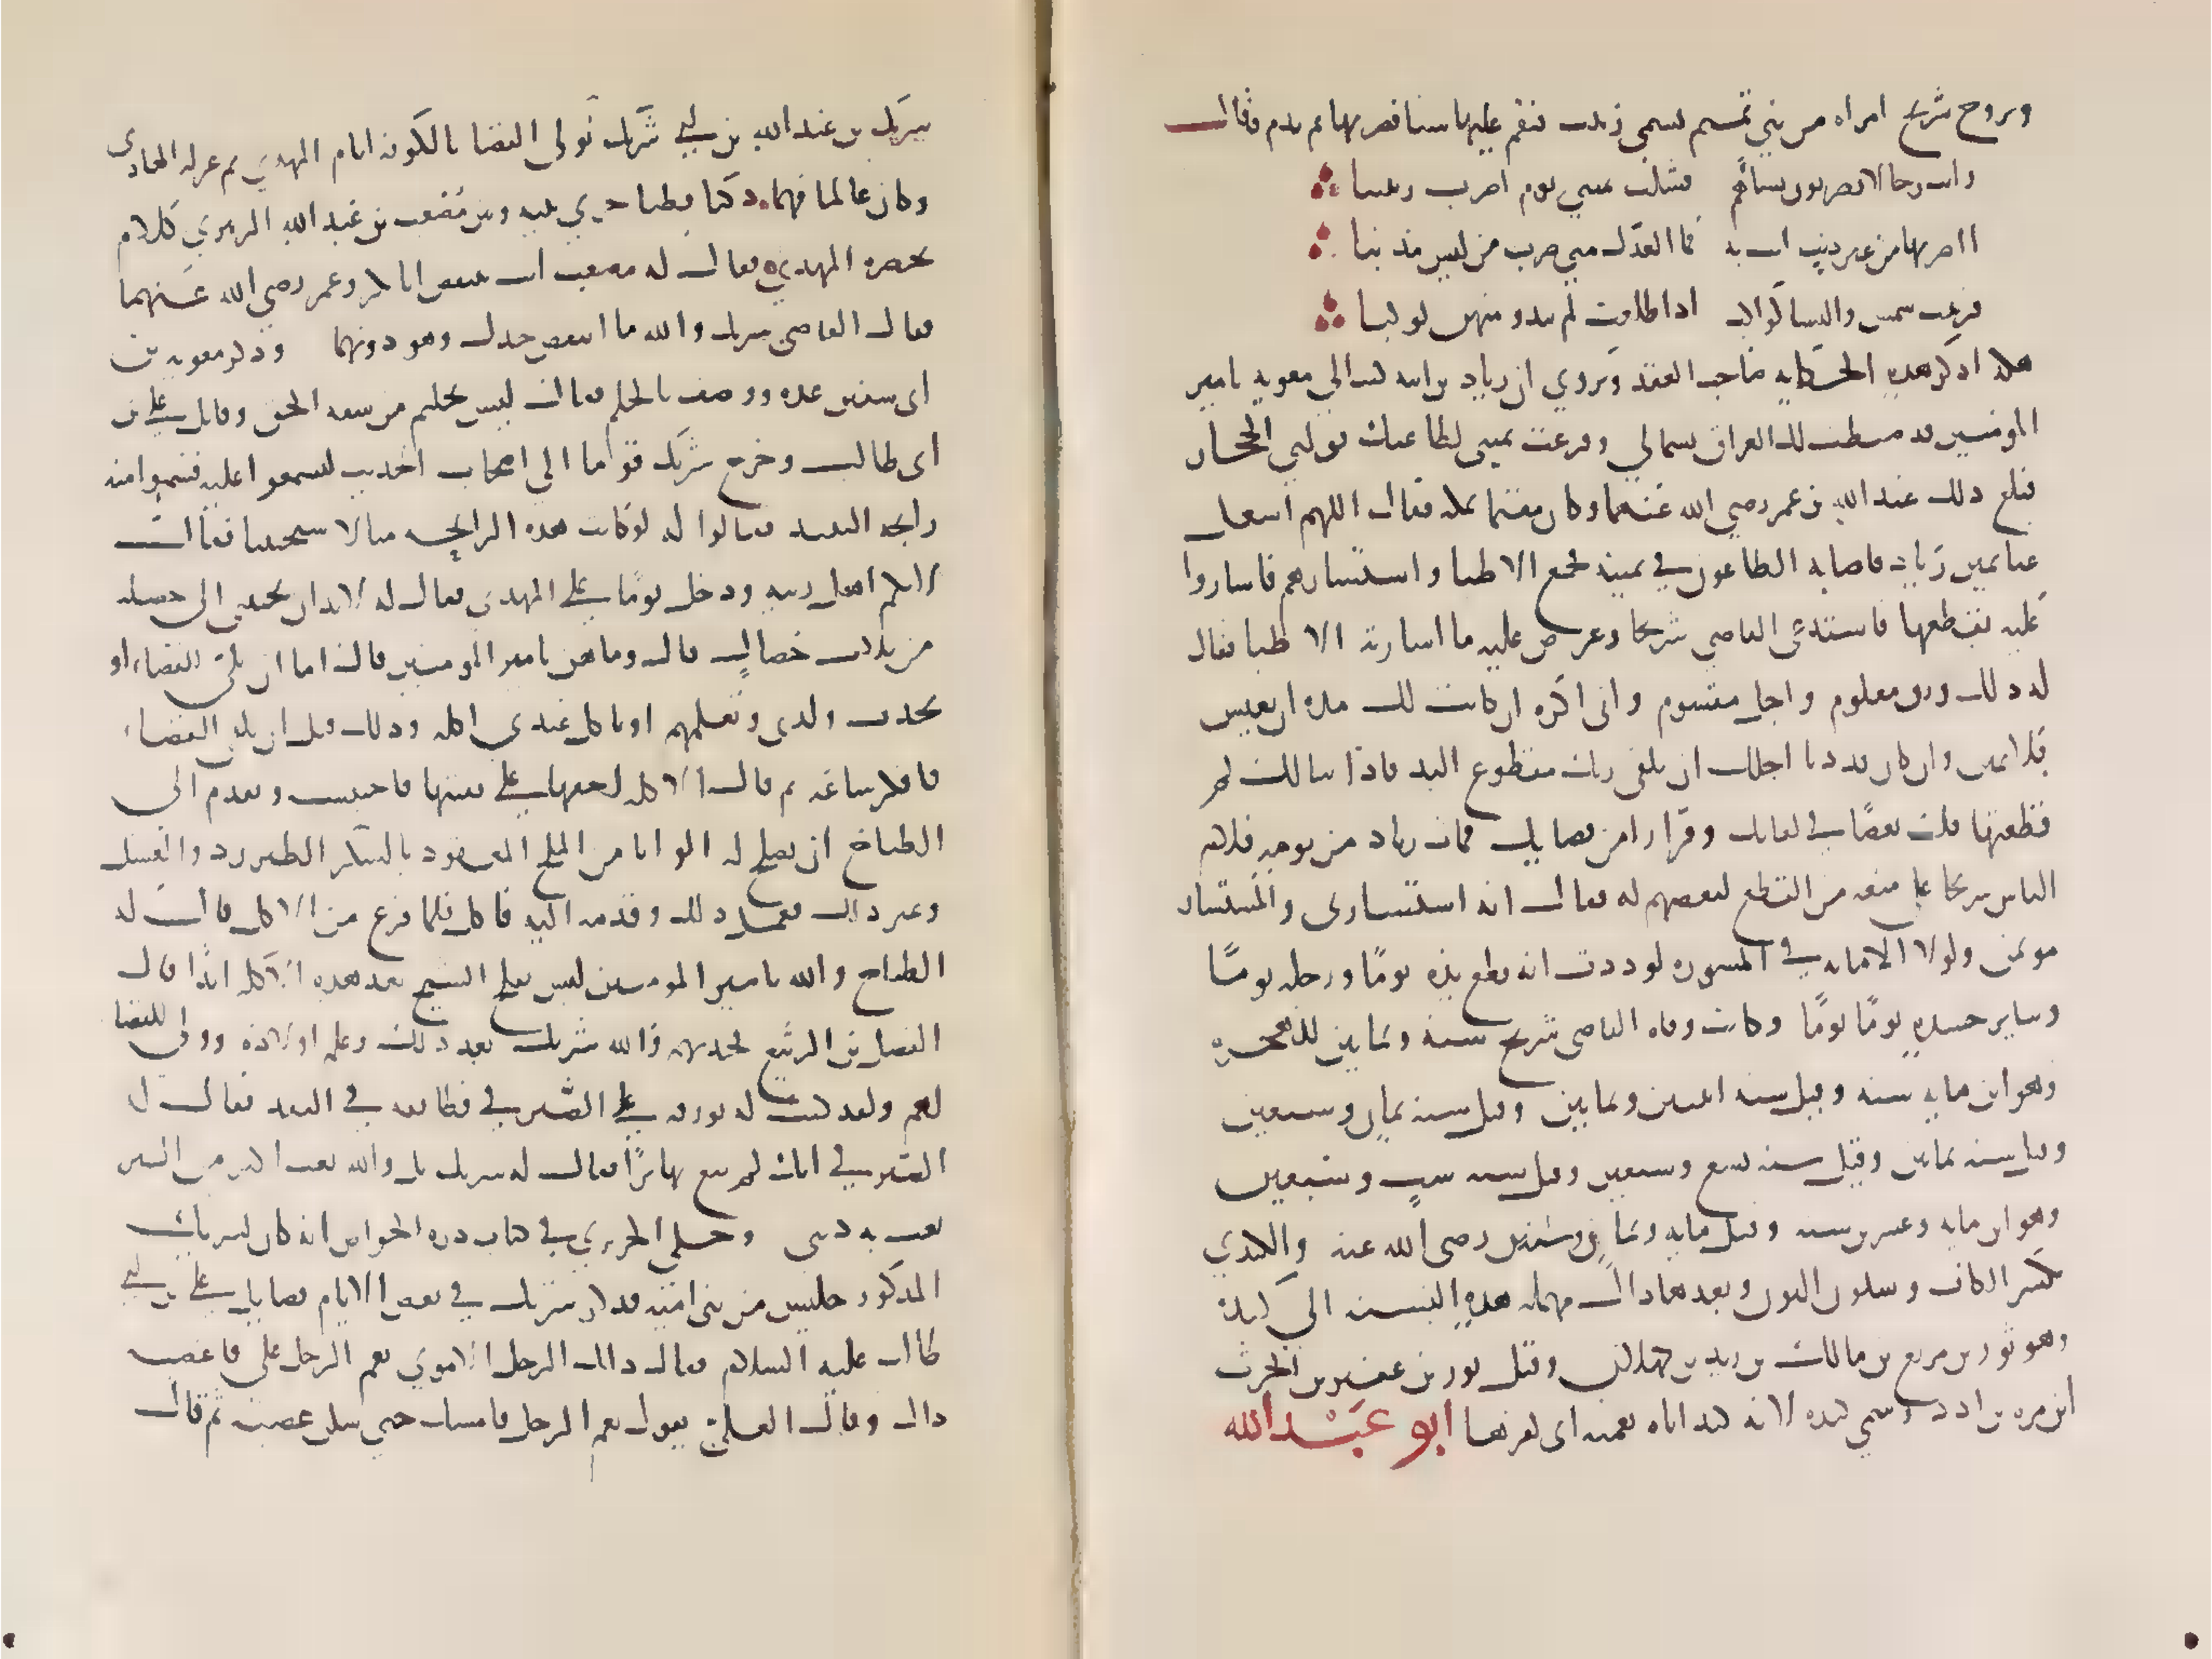 وتزوج شريح امراه من بني تميم تسمى زينب فنقم عليها شيا فضربها ثم ندم وقال
رايت رجالا يضربون نساهم فشلت يميني يوم اضرب زينبا
ااضربها من غير ذنب اتت به فما العدل مني ضرب من ليس مذنبا
فزينب شمس والنسا كواكب اذا طلعت لم يبدو منهن كوكبا
هكذا ذكر هذه الحكاية صاحب العقد ويروي ان زياد بن ابيه كتب الي معويه يامير
المومنين قد ضبطت لك العراق بشمالي وفرغت يميني لطاعتك فولني الحجاز
فبلغ ذلك عبد الله بن عمر رضي الله عنهما وكان مقيما بمكة فقال اللهم اشغل
عنا يمين زياد فاصابه الطاعون في يمينه فجمع الاطبا واستشارهم فاشاروا
عليه بقطعها فاستدعى القاضي شريحا وعرض عليه ما اشار به الاطبا فقال
له لك رزق معلوم واجل مقسوم واني اكره ان كانت لك مدة ان تعيش
بلا يمين وان كان قد دنا اجلك ان تلقى ربك مقطوع اليد فاذا سالك لم
قطعتها قلت بغضا في لقايك وفرارا من قضايك فمات زياد من يومه فلام
الناس شريحا على منعه من القطع لبغضهم له فقال انه استشارني والمستشار
موتمن ولولا الامانه في المشوره لوددت انه قطع يده يوما ورجله يوما
وساير جسده يوما يوما وكانت وفاه القاضي شريح سنه وثمانين للهجرة
وهو ابن مايه سنه وقيل سنه اثنين وثمانين وقيل سنه ثمان وسبعين
وقيل سنه ثمانين وقيل سنه تسع وسبعين وقيل سنه ست وسبعين
وهو ابن مايه وعشرين سنه وقيل مايه وثمان وسنتين رضي الله عنه والكندي
بكسر الكاف وسكون النون وبعدها دال مهمله هذه النسبه الى كنده
وهو ثور بن مرتع بن مالك بن زيد بن كهلان وقيل ثور بن عفير بن الحرث
ابن مره بن ادد وسمي كنده لانه كند اباه نعمته اي كفرها ابو عبد الله
شريك بن عبد الله بن ابي شريك تولى القضا بالكوفه ايام المهدي ثم عزله الهادي
وكان عالما فهما ذكيا فطنا جري بينه وبين مصعب بن عبد الله الزهري كلام
بحضره المهدي فقال له مصعب انت تنتقص ابا بكر وعمر رضي الله عنهما
فقال القاضي شريك والله ما انتقص جدك وهو دونهما وذكر معويه بن
ابي سفين عنده ووصف بالحلم فقال ليس بحليم من سفه الحق وقاتل علي بن
ابي طالب وخرج شريك يوما الى اصحاب الحديث ليسمعوا عليه فشموا منه
رايحه النبيذ فقالوا له لو كانت هذه الرايحه منا لاستحيينا فقال
لانكم اهل ريبه ودخل يوما على المهدي فقال له لا بد ان تجيبني الى خصله
من ثلاث خصال قال وما هن يامير المومنين قال اما ان تلي القضاء او
تحدث ولدي وتعلمهم او تاكل عندي اكله وذلك قبل ان يلي القضاء
فافكر ساعه ثم قال الاكله اخفها على نفسي فاحتبسه وتقدم الى
الطباخ ان يصلح له الوانا من المخ المعقود بالسكر الطبرزد والعسل
وغير ذلك فعمل ذلك وقدمه اليه فاكل فلما فرغ من الاكل قال له
الطباخ والله يامير المومنين ليس يفلح الشيخ بعد هذه الاكله ابدا قال
الفضل بن الربيع فحدثهم والله شريك بعد ذلك وعلم اولادهم وولي القضا
لهم ولقد كتب له برزقه على الصيرفي فضايقه في النقد فقال له
الصيرفي انك لم تبع بها بزا فقال له شريك بل والله بعت اكبر من البز
بعت به ديني وحكى الحريري في كتاب دره الخواص انه كان لشريك
المذكور جليس من بني اميه فذكر شريك في بعض الايام فضايل علي بن ابي
طالب عليه السلام فقال ذلك الرجل الاموي نعم الرجل علي فاغضبه
ذلك وقال العلي يقول نعم الرجل فامسك حتى سكن غضبه ثم قال